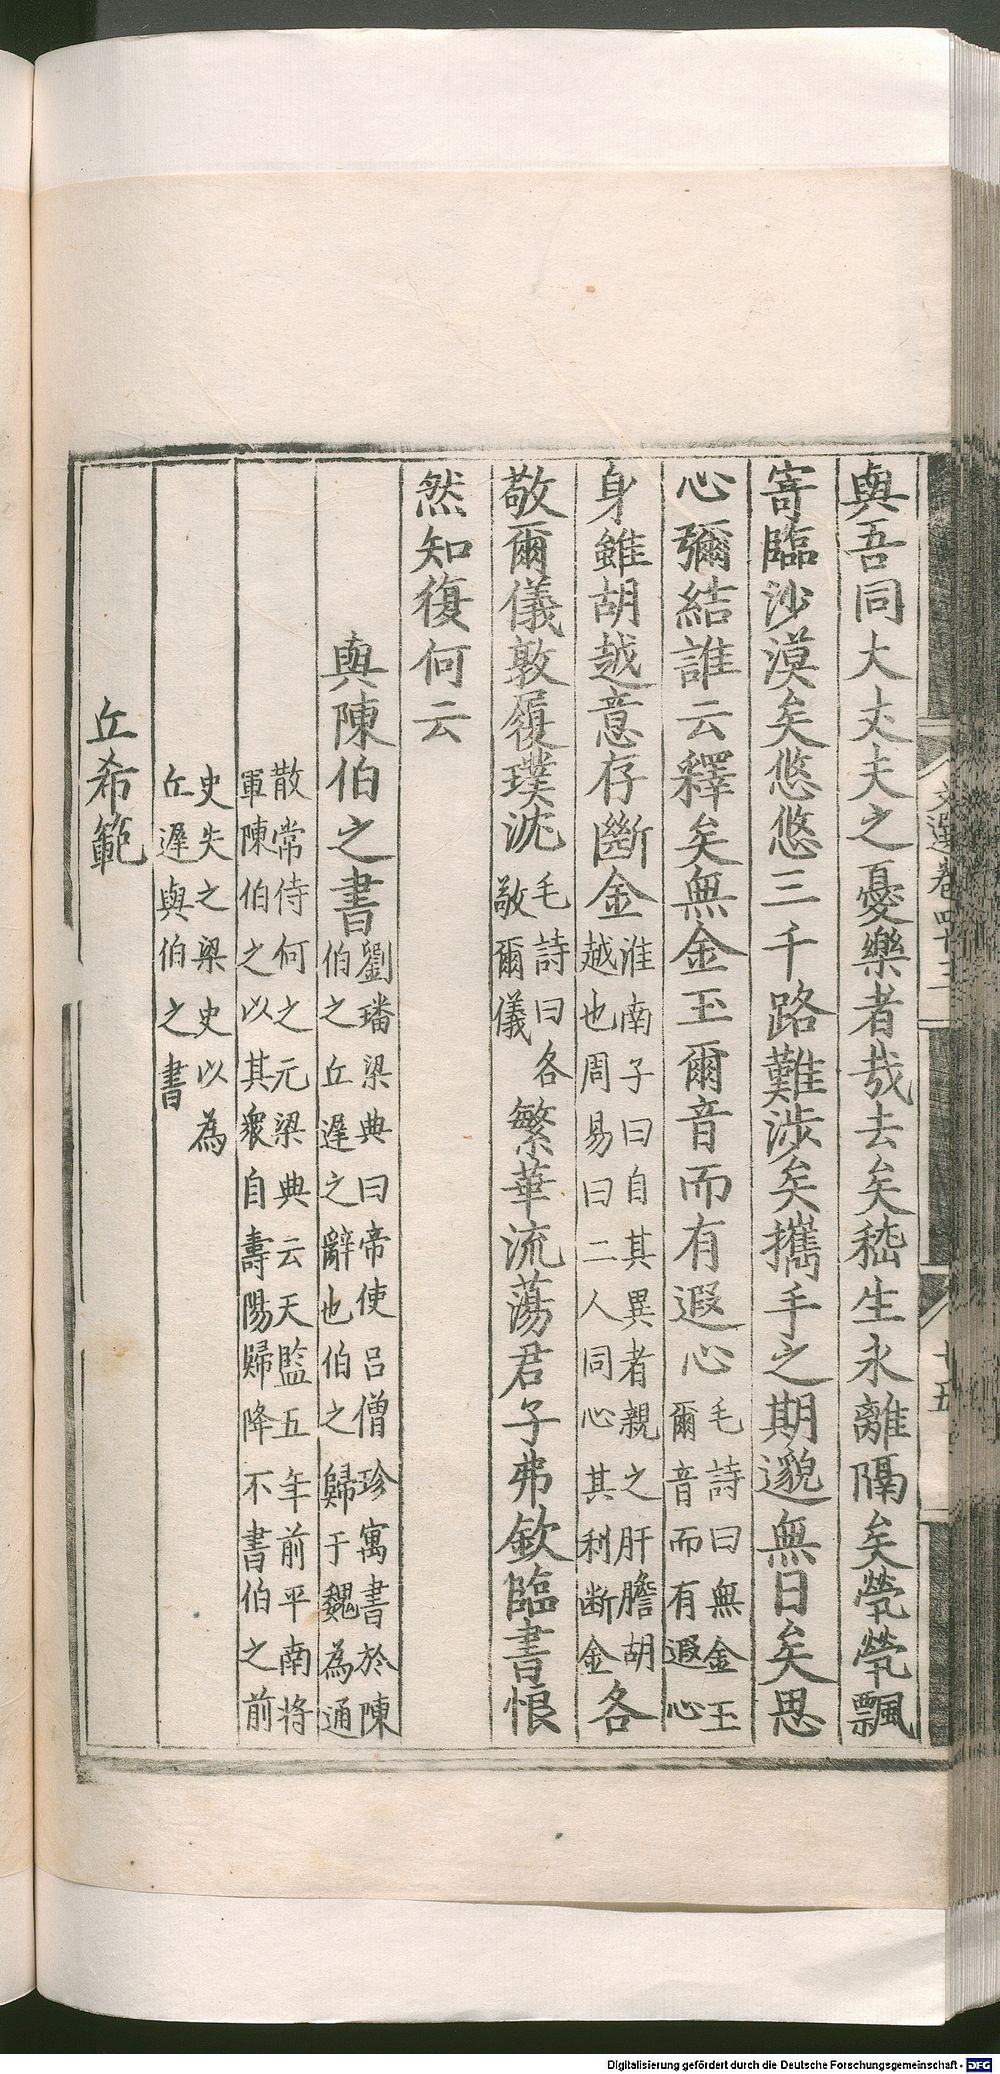 與吾同大丈夫之憂樂者哉去矣嵇生永離隔矣煢煢飄
寄臨沙漠矣悠悠三千路難涉矣攜手之期邈無日矣思
心彌結誰云釋矣無金玉爾音而有遐心毛詩曰無金玉爾音而有遐心
身雖胡越意存斷金淮南子曰自其異者親之肝膽胡越也周易曰二人同心其利断金各
敬爾儀敦履璞沈毛詩曰各敬爾儀繁華流蕩君子弗欽臨書悢
然知復何云
與陳伯之書劉璠梁典曰帝使呂僧珍寓書於陳伯之丘遲之辭也伯之歸于魏為通
散常侍何之元梁典云天監五年前平南将軍陳伯之以其衆自壽陽歸降不書伯之前
史失之梁史以為丘遲與伯之書
丘希範
文選卷四十三
十五
Digitalisierung gefördert durch die Deutsche Forschungsgemeinschaft - DFG